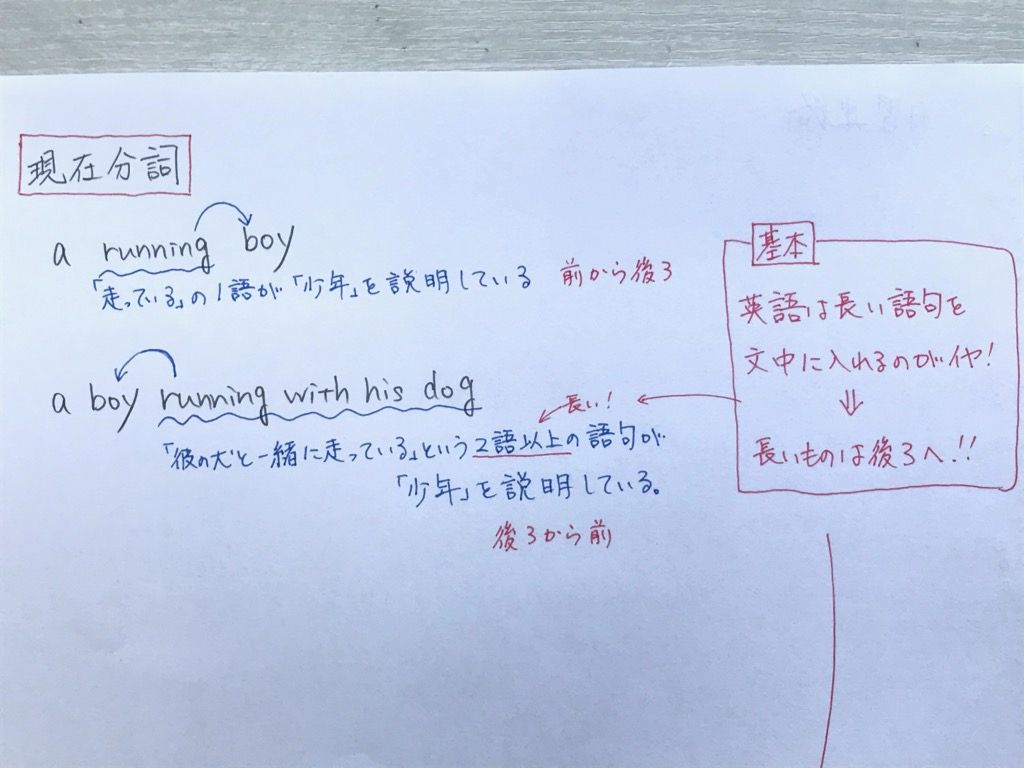 現在分詞
a running boy
「走っている」の1語が「少年」を説明している 前から後ろ
a boy running with his dog
長い!
「彼の犬と一緒に走っている」という2語以上の語句が
「少年」を説明している。
後ろから前
基本
英語は長い語句を
文中に入れるのがイヤ!
⇓
長いものは後ろへ!!